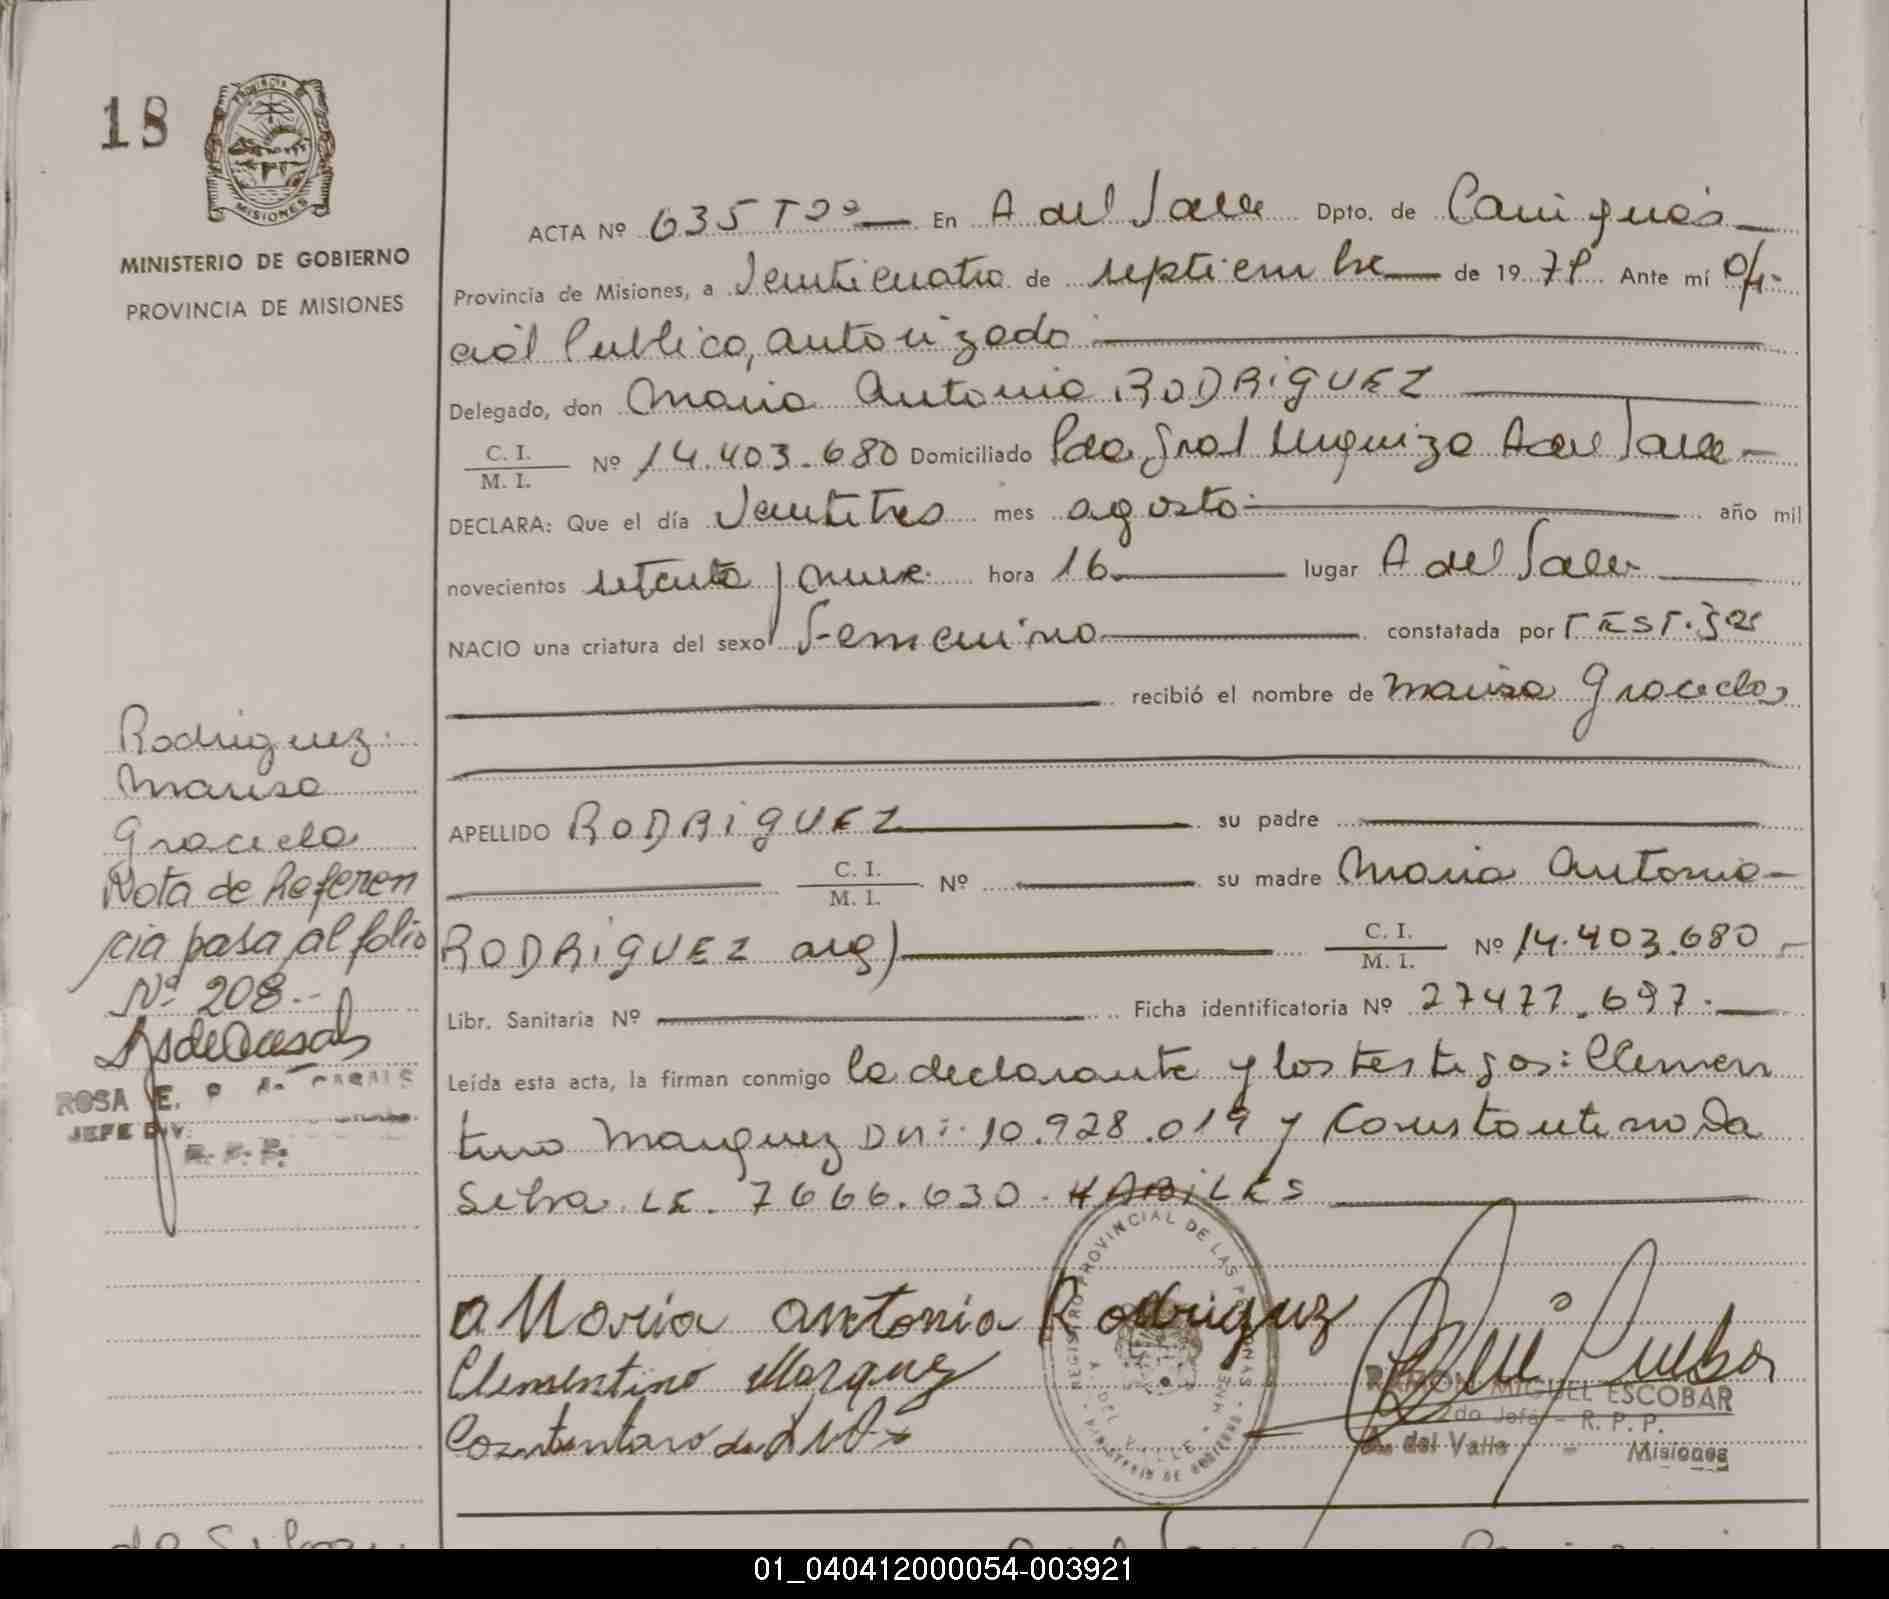 18
PROVINCIA DE
MISIONES
MINISTERIO DE GOBIERNO
PROVINCIA DE MISIONES
ACTA Nº 635 Tº En A del Valle Dpto. de Cainguás
Provincia de Misiones, a Veinticuatro de septiembre de 1979 Ante mí Ofi-
cial Publico, autorizado
Delegado, don Maria Antonia RODRIGUEZ
C. I.
M. I. Nº 14.403.680 Domiciliado Pdo Gral Urquiza A del Valle
DECLARA: Que el día Veintitres mes agosto año mil
novecientos setenta y nueve hora 16 lugar A del Valle
NACIO una criatura del sexo Femenino constatada por TEST.
recibió el nombre de Marisa Graciela
APELLIDO RODRIGUEZ su padre
C. I.
M. I. Nº su madre Maria Antonia
RODRIGUEZ arg) C. I.
M. I. Nº 14.403.680
Libr. Sanitaria Nº Ficha identificatoria Nº 27477.697.
Leída esta acta, la firman conmigo la declarante y los testigos: Clemen
tino Marquez Dni. 10.928.019 y Constantino Da
Silva LE. 7666.630. HABILES
Rodriguez
Marisa
Graciela
Nota de Referen
cia pasa al folio
Nº 208.-
ROSA E. CASALS
JEFE DIV.
R. P. P.
Maria Antonia Rodriguez
Clementino Marquez
REGISTRO PROVINCIAL DE LAS PERSONAS
A. DEL VALLE
MINISTERIO DE GOBIERNO
RAMON MIGUEL ESCOBAR
2do Jefe - R. P. P.
del Valle - Misiones
01_040412000054-003921